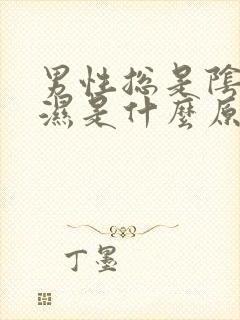 男性総是陰
濕是什麼原
丁墨